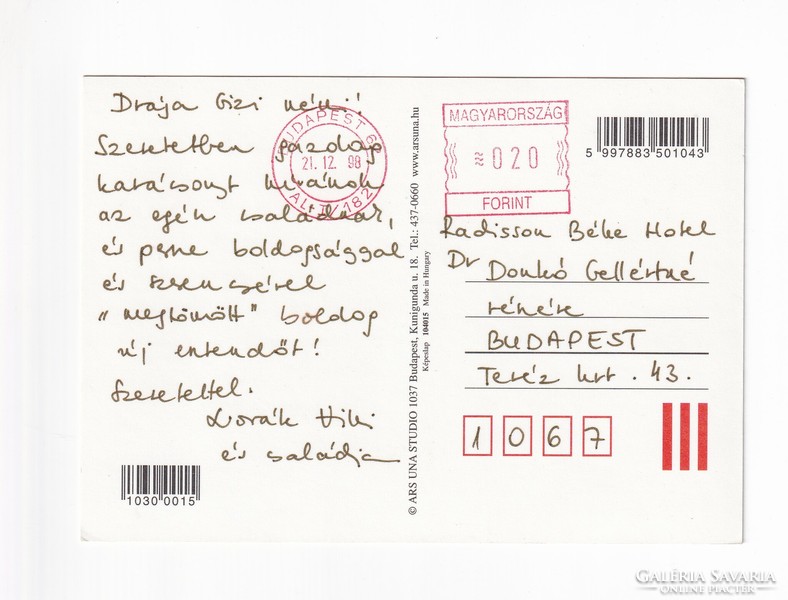 Drága Gizi néni!
Szeretetben gazdag
karácsonyt kívánok
az egész családnak,
és persze boldogsággal
és szerencsével
„megtömött" boldog
új esztendőt!
Szeretettel.
Dorák Viki
és családja
1030 0015
BUDAPEST 6
21. 12. 98
© ARS UNA STUDIO 1037 Budapest, Kunigunda u. 18. Tel.: 437-0660 www.arsuna.hu
Képeslap 104015 Made in Hungary
MAGYARORSZÁG
≈020
FORINT
5 997883 501043
Radisson Béke Hotel
Dr Donkó Gellértné
részére
BUDAPEST
Teréz krt. 43.
1067
GALÉRIA SAVARIA
ONLINE PIACTÉR